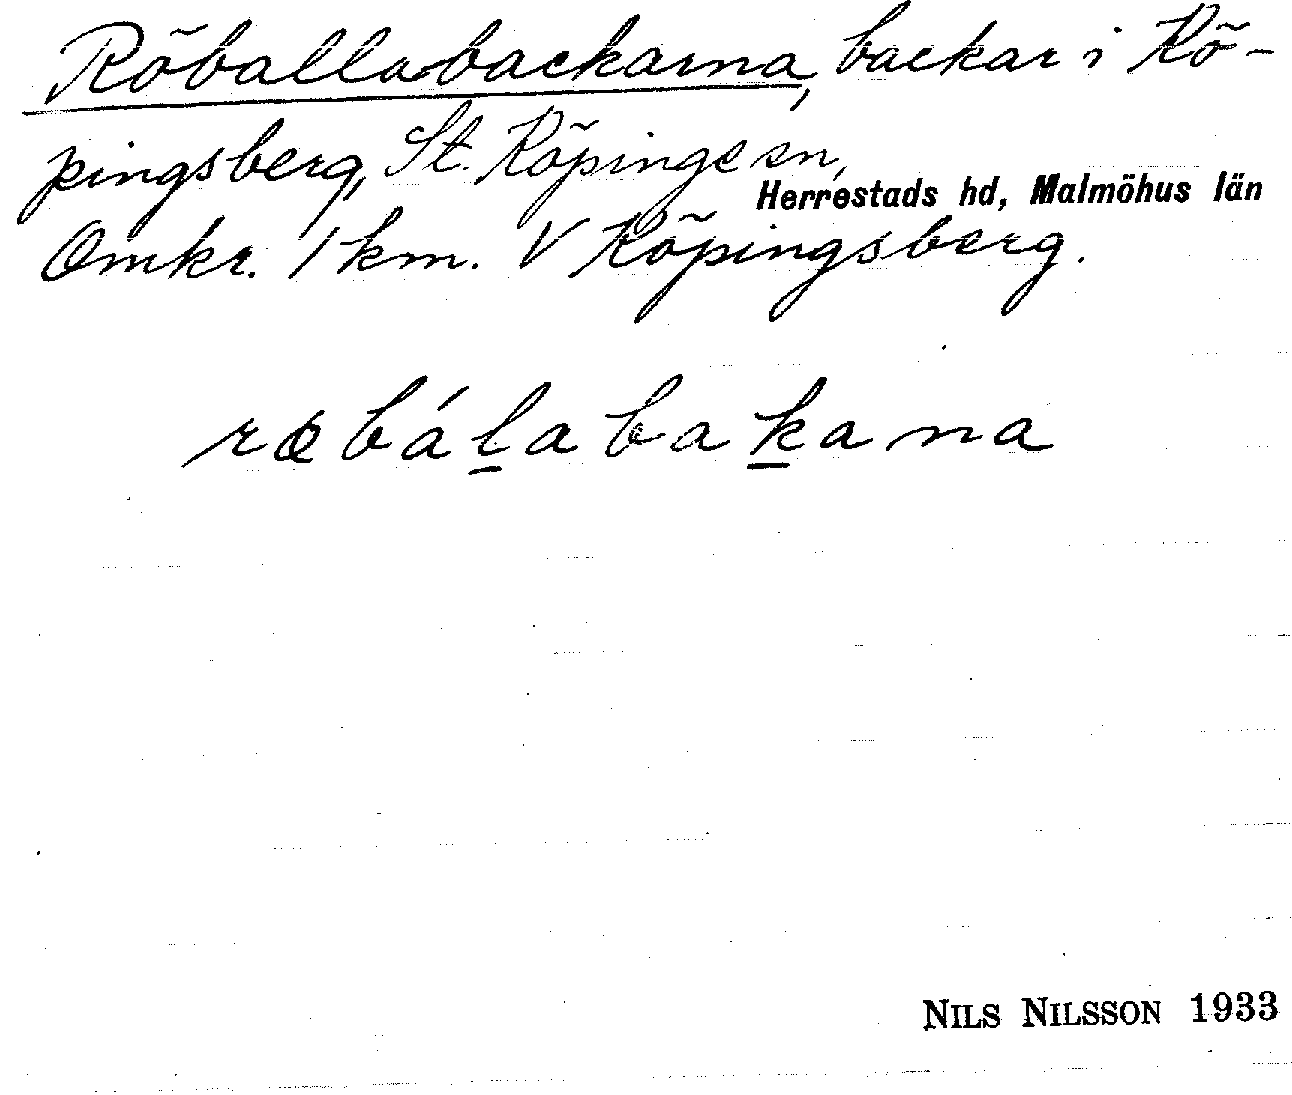 Röballabackarna, backar i Kö-
pingsberg, St. Köpinge sn,
Herrestads hd, Malmöhus län
Omkr. 1 km. V Köpingsberg.
rœbáḻabaḵana
NILS NILSSON 1933